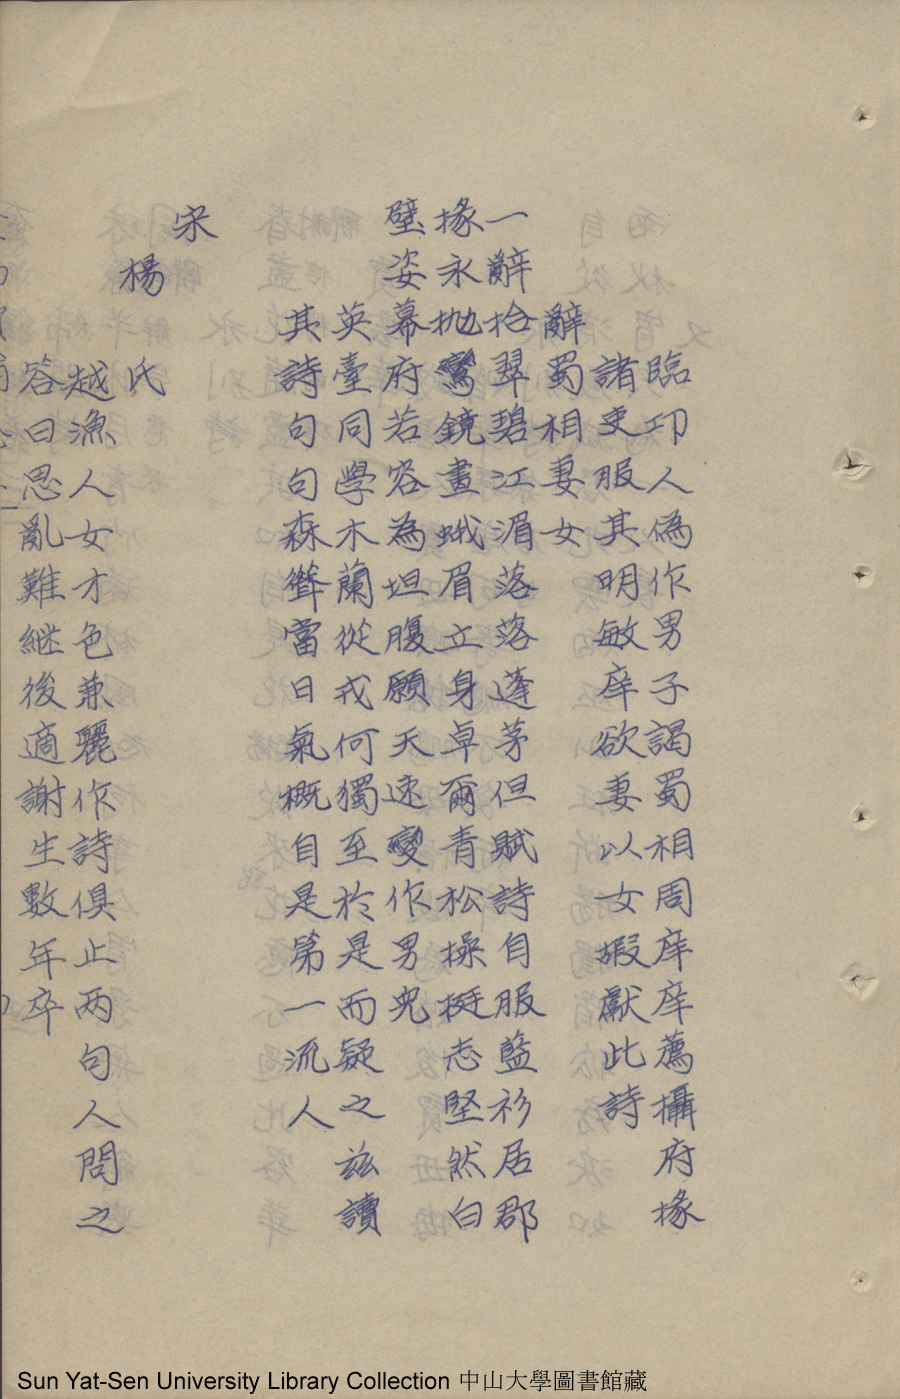 臨卬人偽作男子謁蜀相周庠庠薦攝府掾
諸吏服其明敏庠欲妻以女嘏獻此詩
辭蜀相妻女
一辭拾翠碧江湄落落蓬茅但賦詩自服藍衫居郡
掾永抛鸞鏡畫蛾眉立身卓爾青松操挺志堅然白
璧姿幕府若容為坦腹願天速變作男兒
英臺同學木蘭從戎何獨至於是而疑之茲讀
其詩句句森聳當日氣概自是第一流人
宋
楊氏
越漁人女才色兼麗作詩俱止两句人問之
答曰思亂難继後適謝生數年卒
Sun Yat-Sen University Library Collection 中山大學圖書館藏